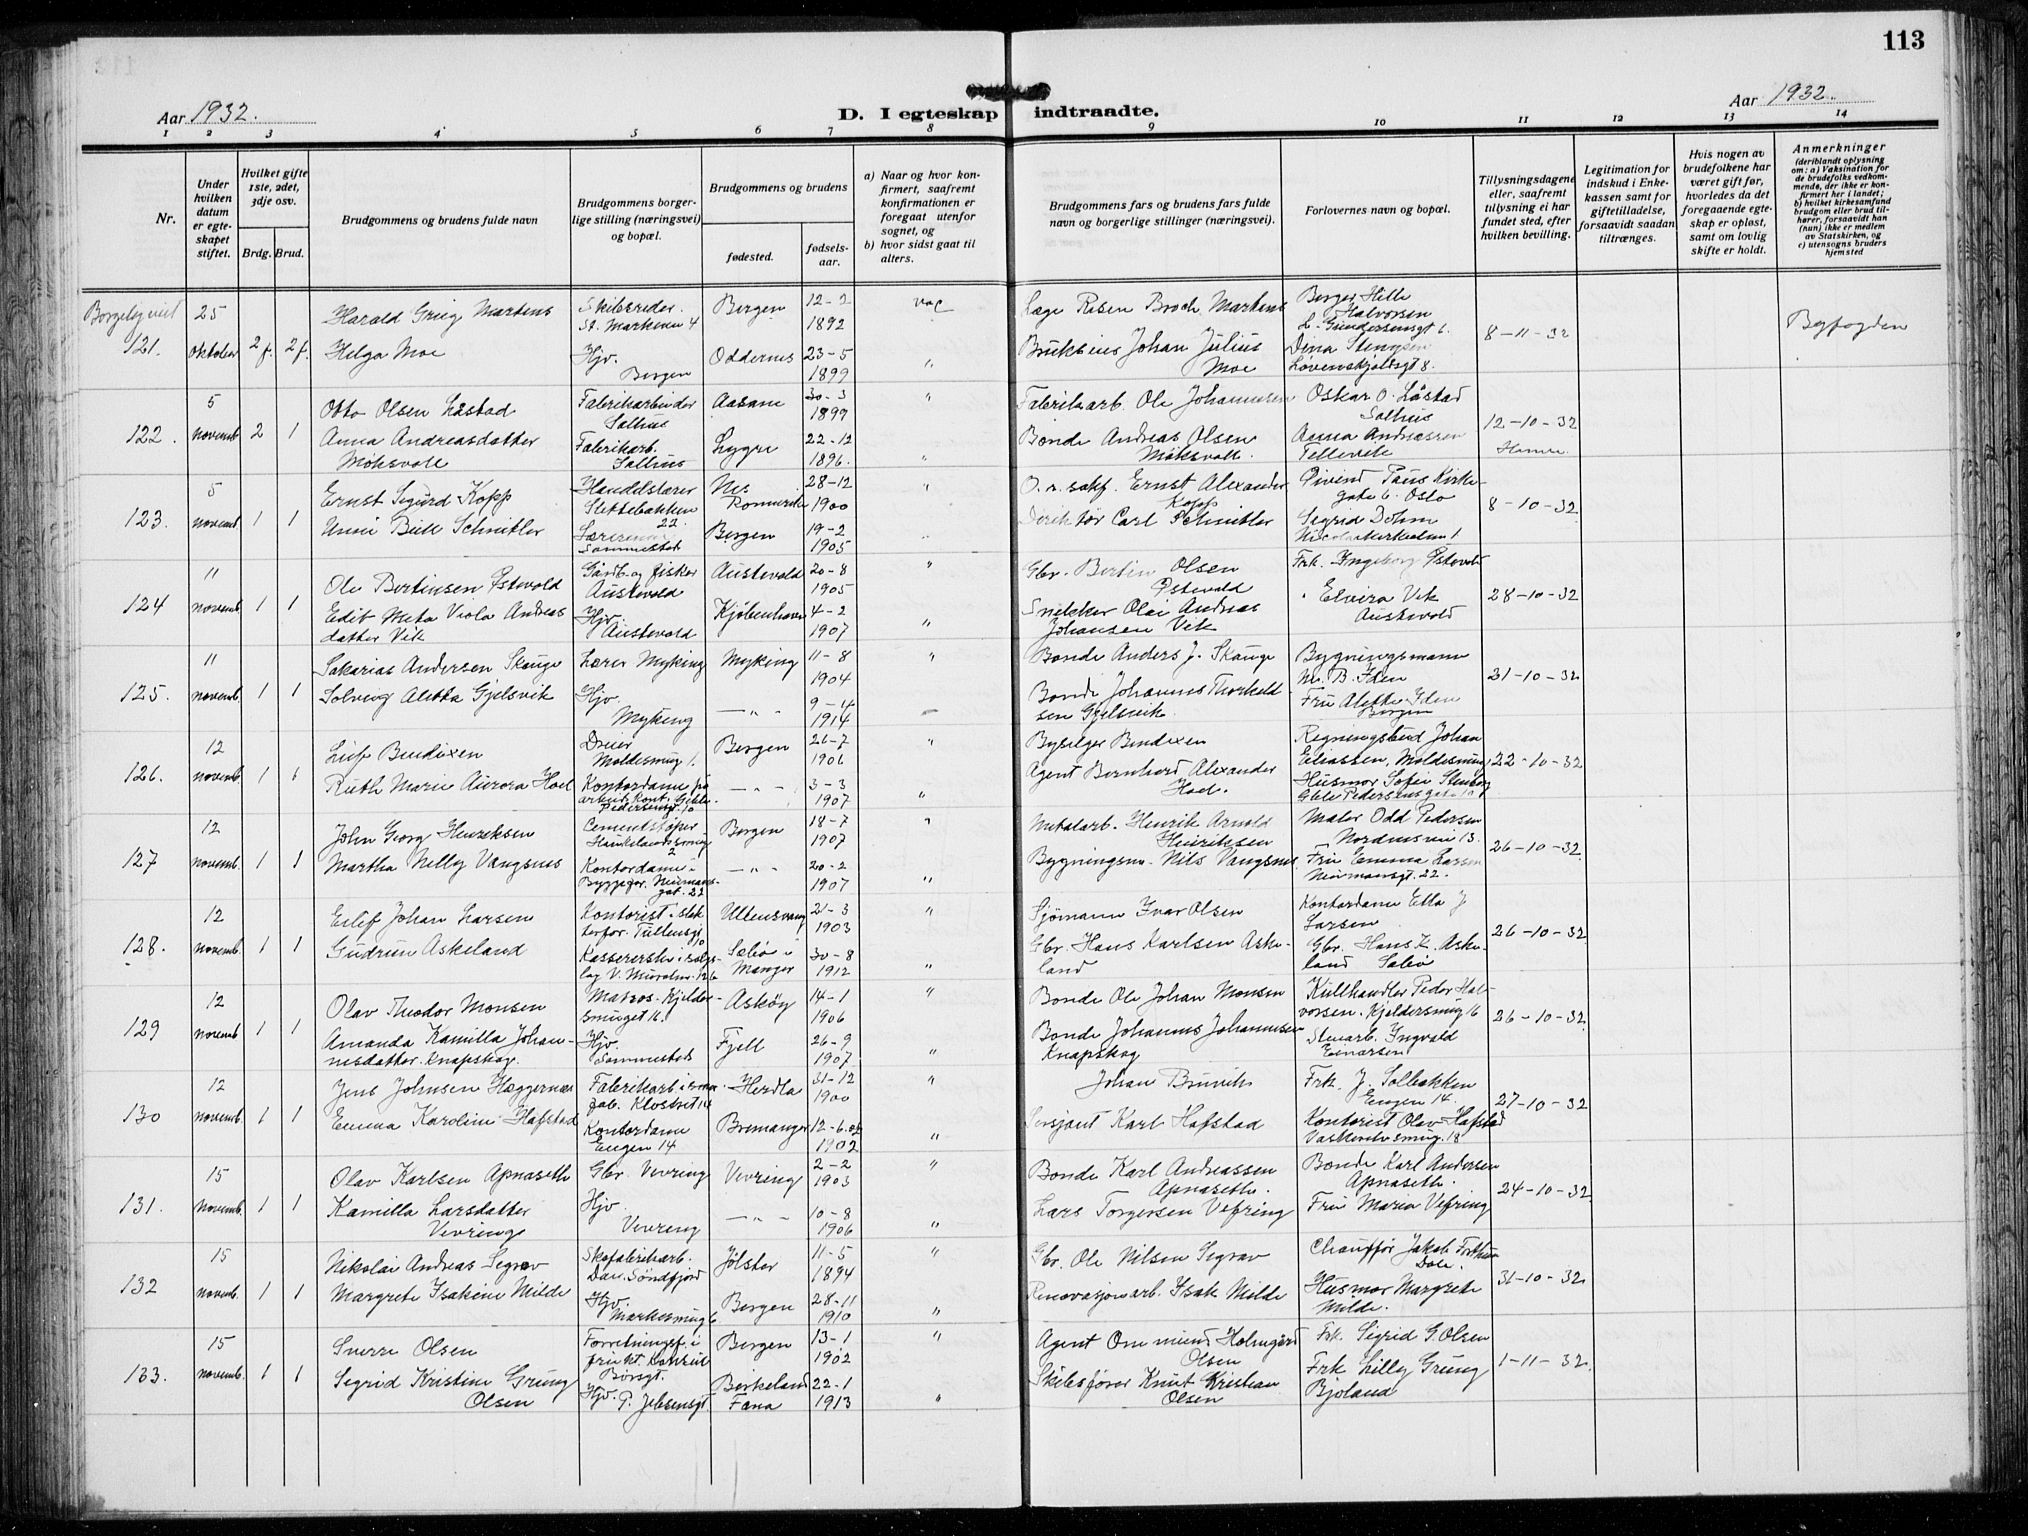 113
Aar 1932.
D. I egteskap indtraadte.
Aar 1932.
1 2 3 4 5 6 7 8 9 10 11 12 13 14
Nr.
Under hvilken datum er egteskapet stiftet.
Hvilket gifte 1ste, 2det, 3dje osv.
Brdg. Brud.
Brudgommens og brudens fulde navn
Brudgommens borgerlige stilling (næringsvei) og bopæl.
Brudgommens og brudens
fødested.
fødselsaar.
a) Naar og hvor konfirmert, saafremt konfirmationen er foregaat utenfor sognet, og
b) hvor sidst gaat til alters.
Brudgommens fars og brudens fars fulde navn og borgerlige stillinger (næringsvei).
Forlovernes navn og bopæl.
Tillysningsdagene eller, saafremt tillysning ei har fundet sted, efter hvilken bevilling.
Legitimation for indskud i Enkekassen samt for giftetilladelse, forsaavidt saadan tiltrænges.
Hvis nogen av brudefolkene har været gift før, hvorledes da det foregaaende egteskap er opløst, samt om lovlig skifte er holdt.
Anmerkninger
(deriblandt oplysning om: a) Vaksination for de brudefolks vedkommende, der ikke er konfirmert her i landet; b) hvilket kirkesamfund brudgom eller brud tilhører, forsaavidt han (hun) ikke er medlem av Statskirken, og c) utensogns bruders hjemsted
Borgerlig viet 25 Harald Grieg Martens Skibsreder Bergen 12-2 1892 vac Læge Resen Broch Martens Birger Hille Halvorsen
121. oktober 2 f. 2 f. Helga Moe Hjv. Bergen Oddernes 23-5 1899 " Brukseier Johan Julius Moe Dina Løvenskjoldsgt 8. 8-11-32 Byfogden
5 Otto Olsen Låstad Fabrikarbeider Salhus Aasane 30-3 1899 " Fabrikarb. Ole Johannesen Oskar O. Låstad Salhus
122. novemb. 2 1 Anna Andreasdatter Moksvoll Fabrikarb. Salhus Lygre 22-12 1896. " Bonde Andreas Olsen Moksvoll. Anna Andreassen Tellevik 12-10-32 Hamre
5 Ernst Sigurd Kopp Handelslærer Slettebakken 22 Nes Romerike 28-12 1900 " O.r.sakf. Ernst Alexander Kopp Øivind Paus Kirkegata 6. Oslo
123. novemb. 1 1 Schnitler Bergen 19-2 1905 Direktør Carl Schnitler Sigrid Dohm 8-10-32
11 Ole Bertinsen Østevold Gårdb. og fisker Austevold Austevold 20-8 1905 " Gbr. Bertin Olsen Østevold Frk. Ingeborg Østevold
124 novemb. 1 1 Edit Meta Viola Andreasdatter Vik Hjv. Austevold Kjøbenhavn 4-2 1907 " Snekker Olai Andreas Johansen Vik " Elvira Vik Austevold 28-10-32
11 Sakarias Andersen Skauge Lærer Myking Myking 11-8 1904 " Bonde Anders J. Skauge Bygningsmann M. B. Iden
125. novemb. 1 1 Solveig Aletta Gjelsvik Hjv. Myking — " — 9-4 1914 — Bonde Johannes Thorkeldsen Gjelsvik Fru Aletta Iden Bergen 21-10-32
12 Leif Bendixen Dreier Moldesmug 1. Bergen 26-7 1906 " Byselger Bendixen Regningsbud Johan Eliassen, Moldesmug
126. novemb. 1 1 Ruth Marie Aurora Hoel Kontordame på — " — 3-3 1907 " Agent Bernhard Alexander Hoel. Husmor Sofie 22-10-32
12 John Georg Henriksen Cementstøper 2 Bergen 18-7 1907 " Metalarb. Henrik Arnold Henriksen Maler Odd Pedersen Nordnesvei 13.
127 novemb. 1 1 Martha Nelly Vangsnes Kontordame i Byggefor. Neumansgat. 22 — " — 20-2 1907 " Bygningsm. Nils Vangsnes Fru Emma Larsen Neumansgt. 22. 26-10-32
12 Eilif Johan Larsen Kontorist i Tullinsgt 10 Ullensvang 21-3 1903 " Sjømann Ivar Olsen Kontordame Ella J Larsen
128. novemb. 1 1 Gudrun Askeland Kassererske i salgslag Sæbø i Manger 30-8 1912 " Gbr. Hans Karlsen Askeland Gbr. Hans Z. Askeland Sæbø 26-10-32
12 Olav Theodor Monsen Matros. Kjeldersmuget 16. Askøy 14-1 1906 " Bonde Ole Johan Monsen Kullhandler Peder Halvorsen. Kjeldersmug 16
129 novemb. 1 1 Amanda Kamilla Johannesdatter Knapskog. Hjv. Sammesteds Fjell 26-9 1907 " Bonde Johannes Johannesen Knapskog Stenarb. Ingvald Einarsen 26-10-32
12 Jens Johnsen Hæggernæs Fabrikarb. i fab. Klostret 14 Herdla 31-12 1900 " Johan Brunvik Frk. J. Solbakken Engen 14.
130 novemb. 1 1 Emma Karoline Hafstad Kontordame Engen 14 Bremanger 12-6. 1902 " Sersjant Karl Hafstad Kontorist Olav Hafstad Vaskerelvsmug. 18 27-10-32
15 Olav Karlsen Apnaseth Gbr. Vevring Vevring 2-2 1903 " Bonde Karl Andreassen Apnaseth. Bonde Karl Andersen Apnaseth.
131. novemb. 1 1 Kamilla Larsdatter Vevringe Hjv. Vevring — " — 10-8 1906 " Lars Torgersen Vefring Fru Maria Vefring 24-10-32
15 Nikolai Andreas Segrov Skofabrikarb. Dale. Søndfjord Jølster 11-5 1894 " Gbr. Ole Nilsen Segrov Chauffør Jakob Dale.
132 novemb. 1 1 Margrete Isakine Milde Hjv. Markesmug 6 Bergen 28-11 1910 " Renovasjonsarb. Isak Milde Husmor Margrete Milde. 31-10-32
15 Sverre Olsen Forretningsf. i Børsgt. Bergen 13-1 1902 " Agent Ommund Holmgård Olsen Frk. Sigrid G. Olsen
133. novemb. 1 1 Sigrid Kristine Grung Olsen Hjv. P. Jebsensgt. Birkeland Fana 22-1 1913 " Skibsfører Knut Kristian Olsen Frk Lilly Grung Bjoland 1-11-32